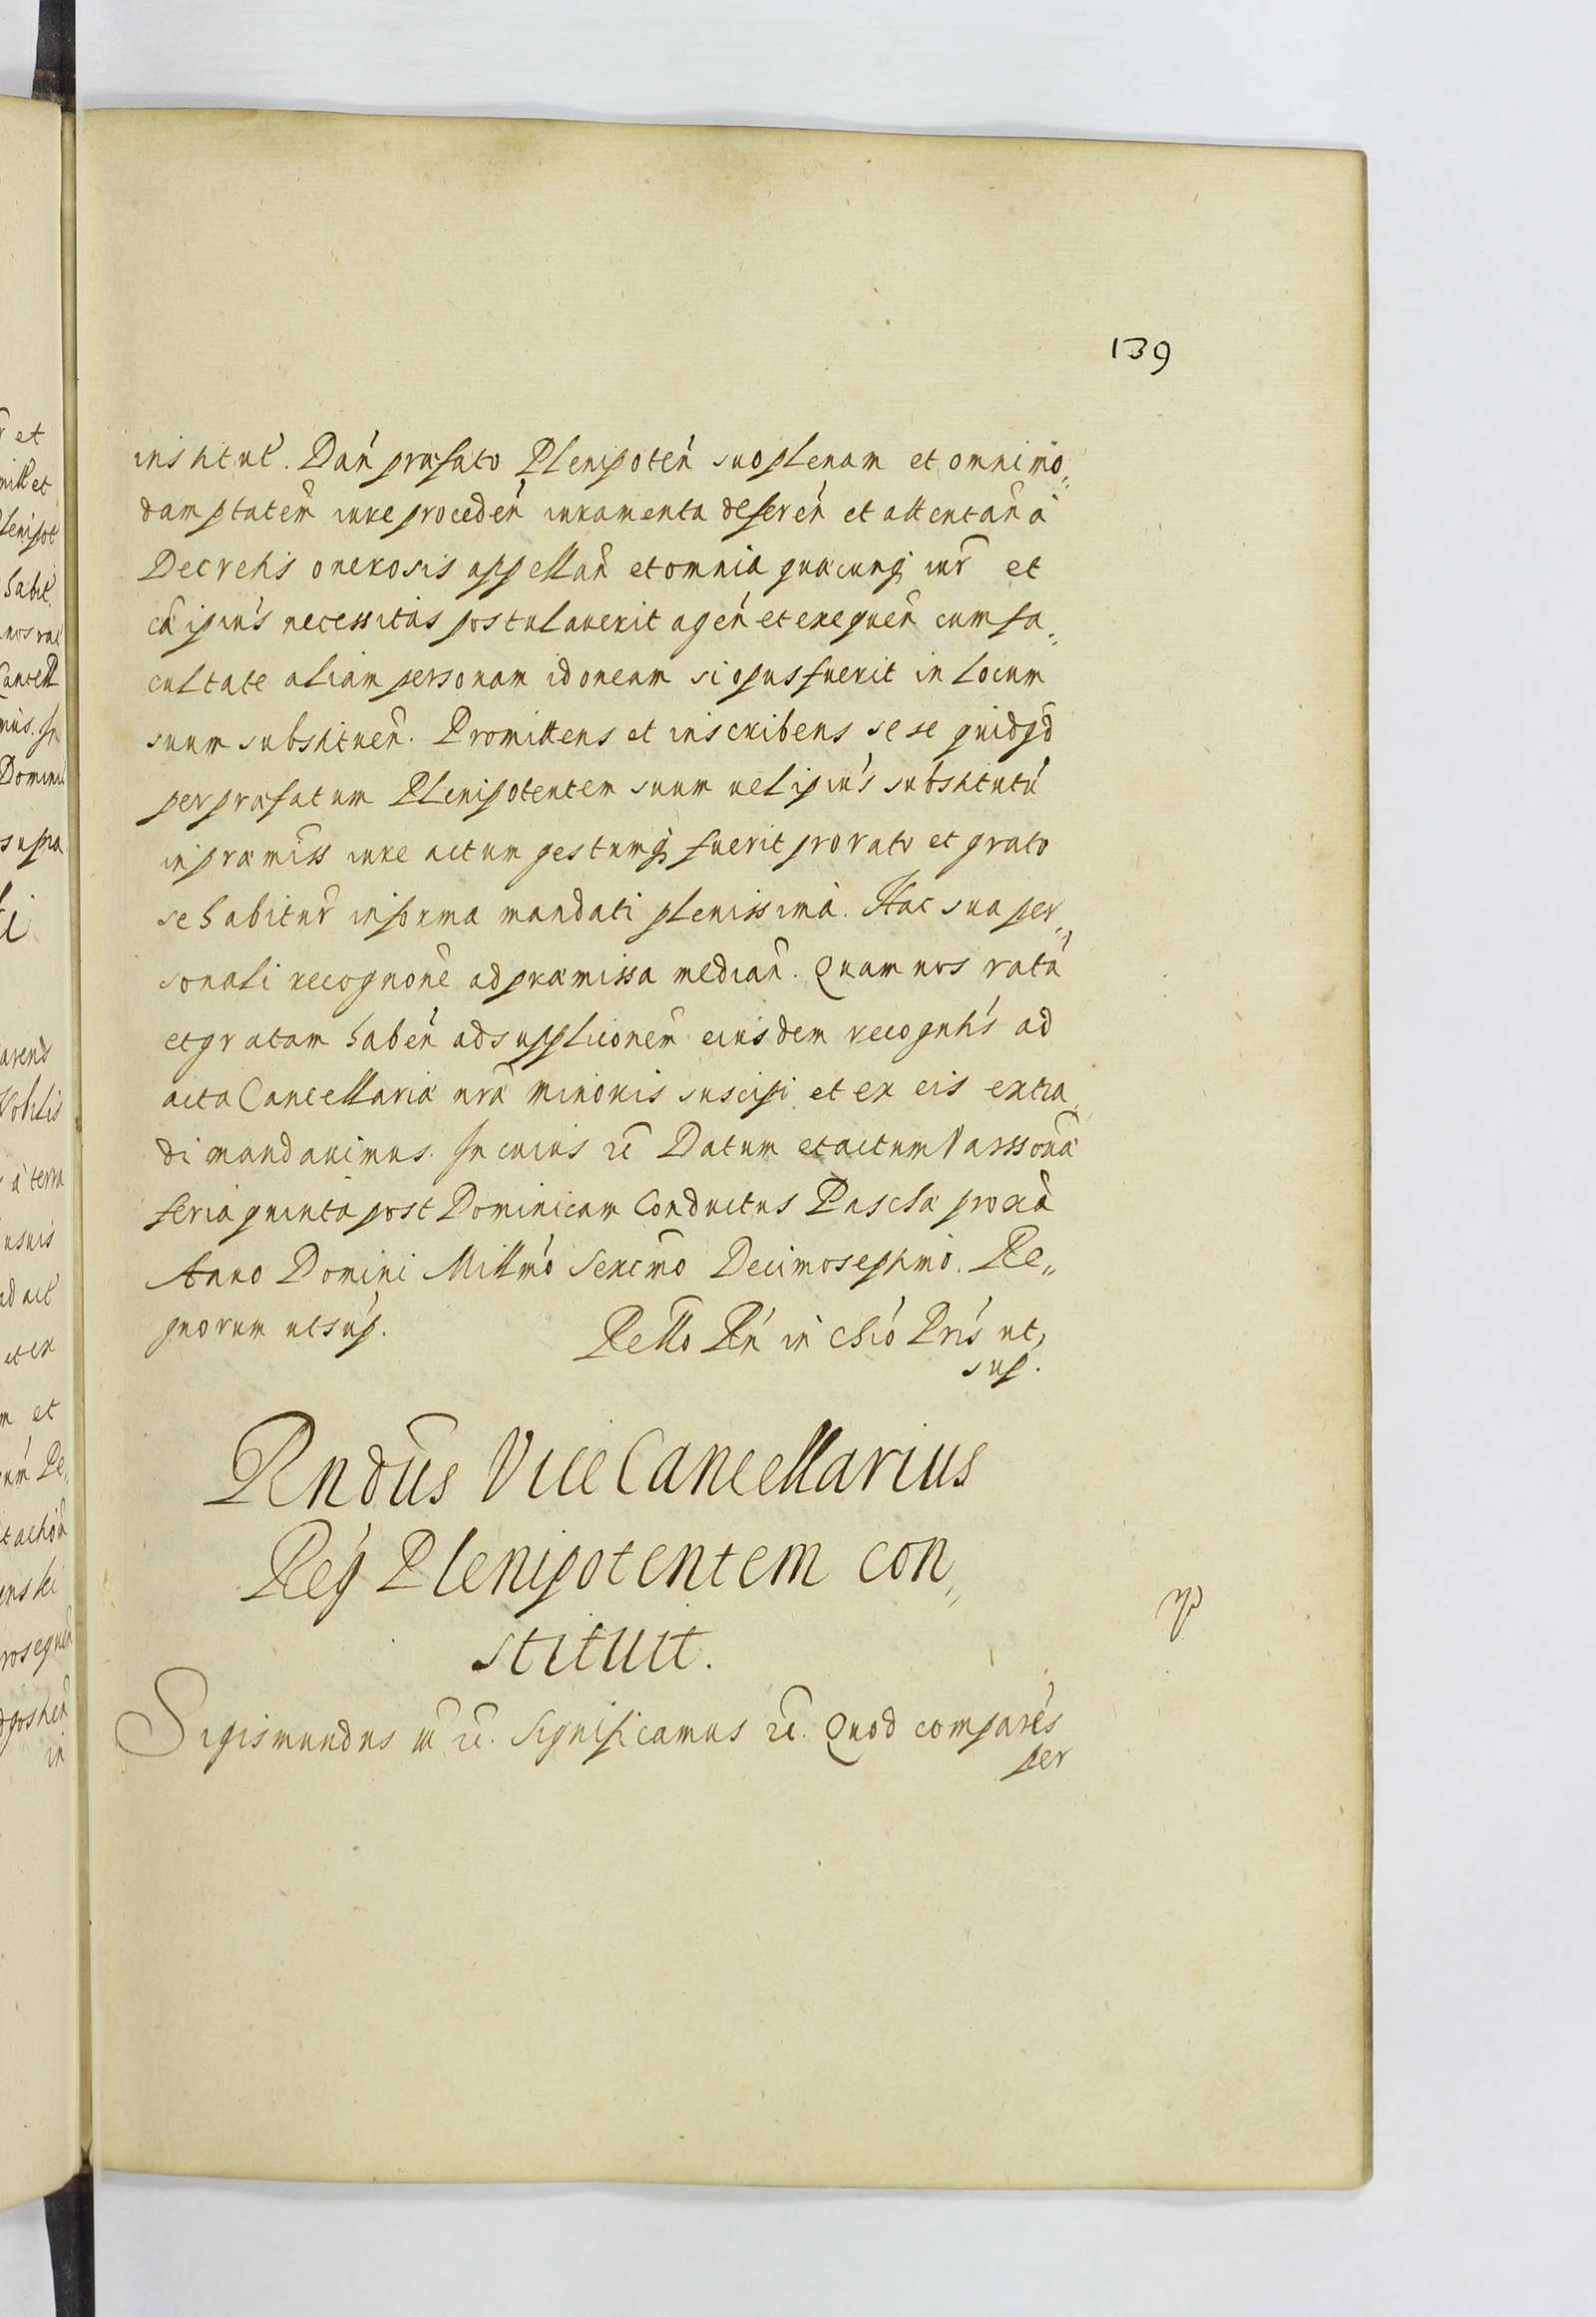 139
institut. Dan præfato Plenipoten suo plenam et omnimo„
dam ptatem iure proceden iuramenta deferen et attentan à
Decretis onerosis appellan et omnia quæcunq iur et
cā ipius necessitas postulauerit agen et exequen cum fa„
cultate aliam personam idoneam si opus fuerit in locum
suum substituen. Promittens et inscribens se se quidqd
per præfatum Plenipotentem suum uel ipius substitutū
in præmiss iure actum gestumq fuerit pro rato et grato
se habitur in forma mandati plenissima. Hac sua per„
sonali recognone ad præmissa median. Quam nos ratā
et gratam haben ad supplicionem eiusdem recogntis ad
acta Cancellariæ nræ minoris suscipi et ex eis extra„
di mandauimus. In cuius rē Datum et actum Varssouiæ
feria quinta post Dominicam Conductus Paschæ proxiā
Anno Domini Millmo Sexcmo Decimoseptimo. Re„
gnorum ut sup.
Rello Rn in Chio Pris ut
sup.
Rndūs ViceCancellarius
Reg Plenipotentem con„
stituit.
Sigismundus iii rē. Significamus rē. Quod comparēs
per
et
mill et
Plenipot
habit
nos
Cancell
Domini
supra
Nobilis
à terra
suis
ad act
et ex
et
Re„
in